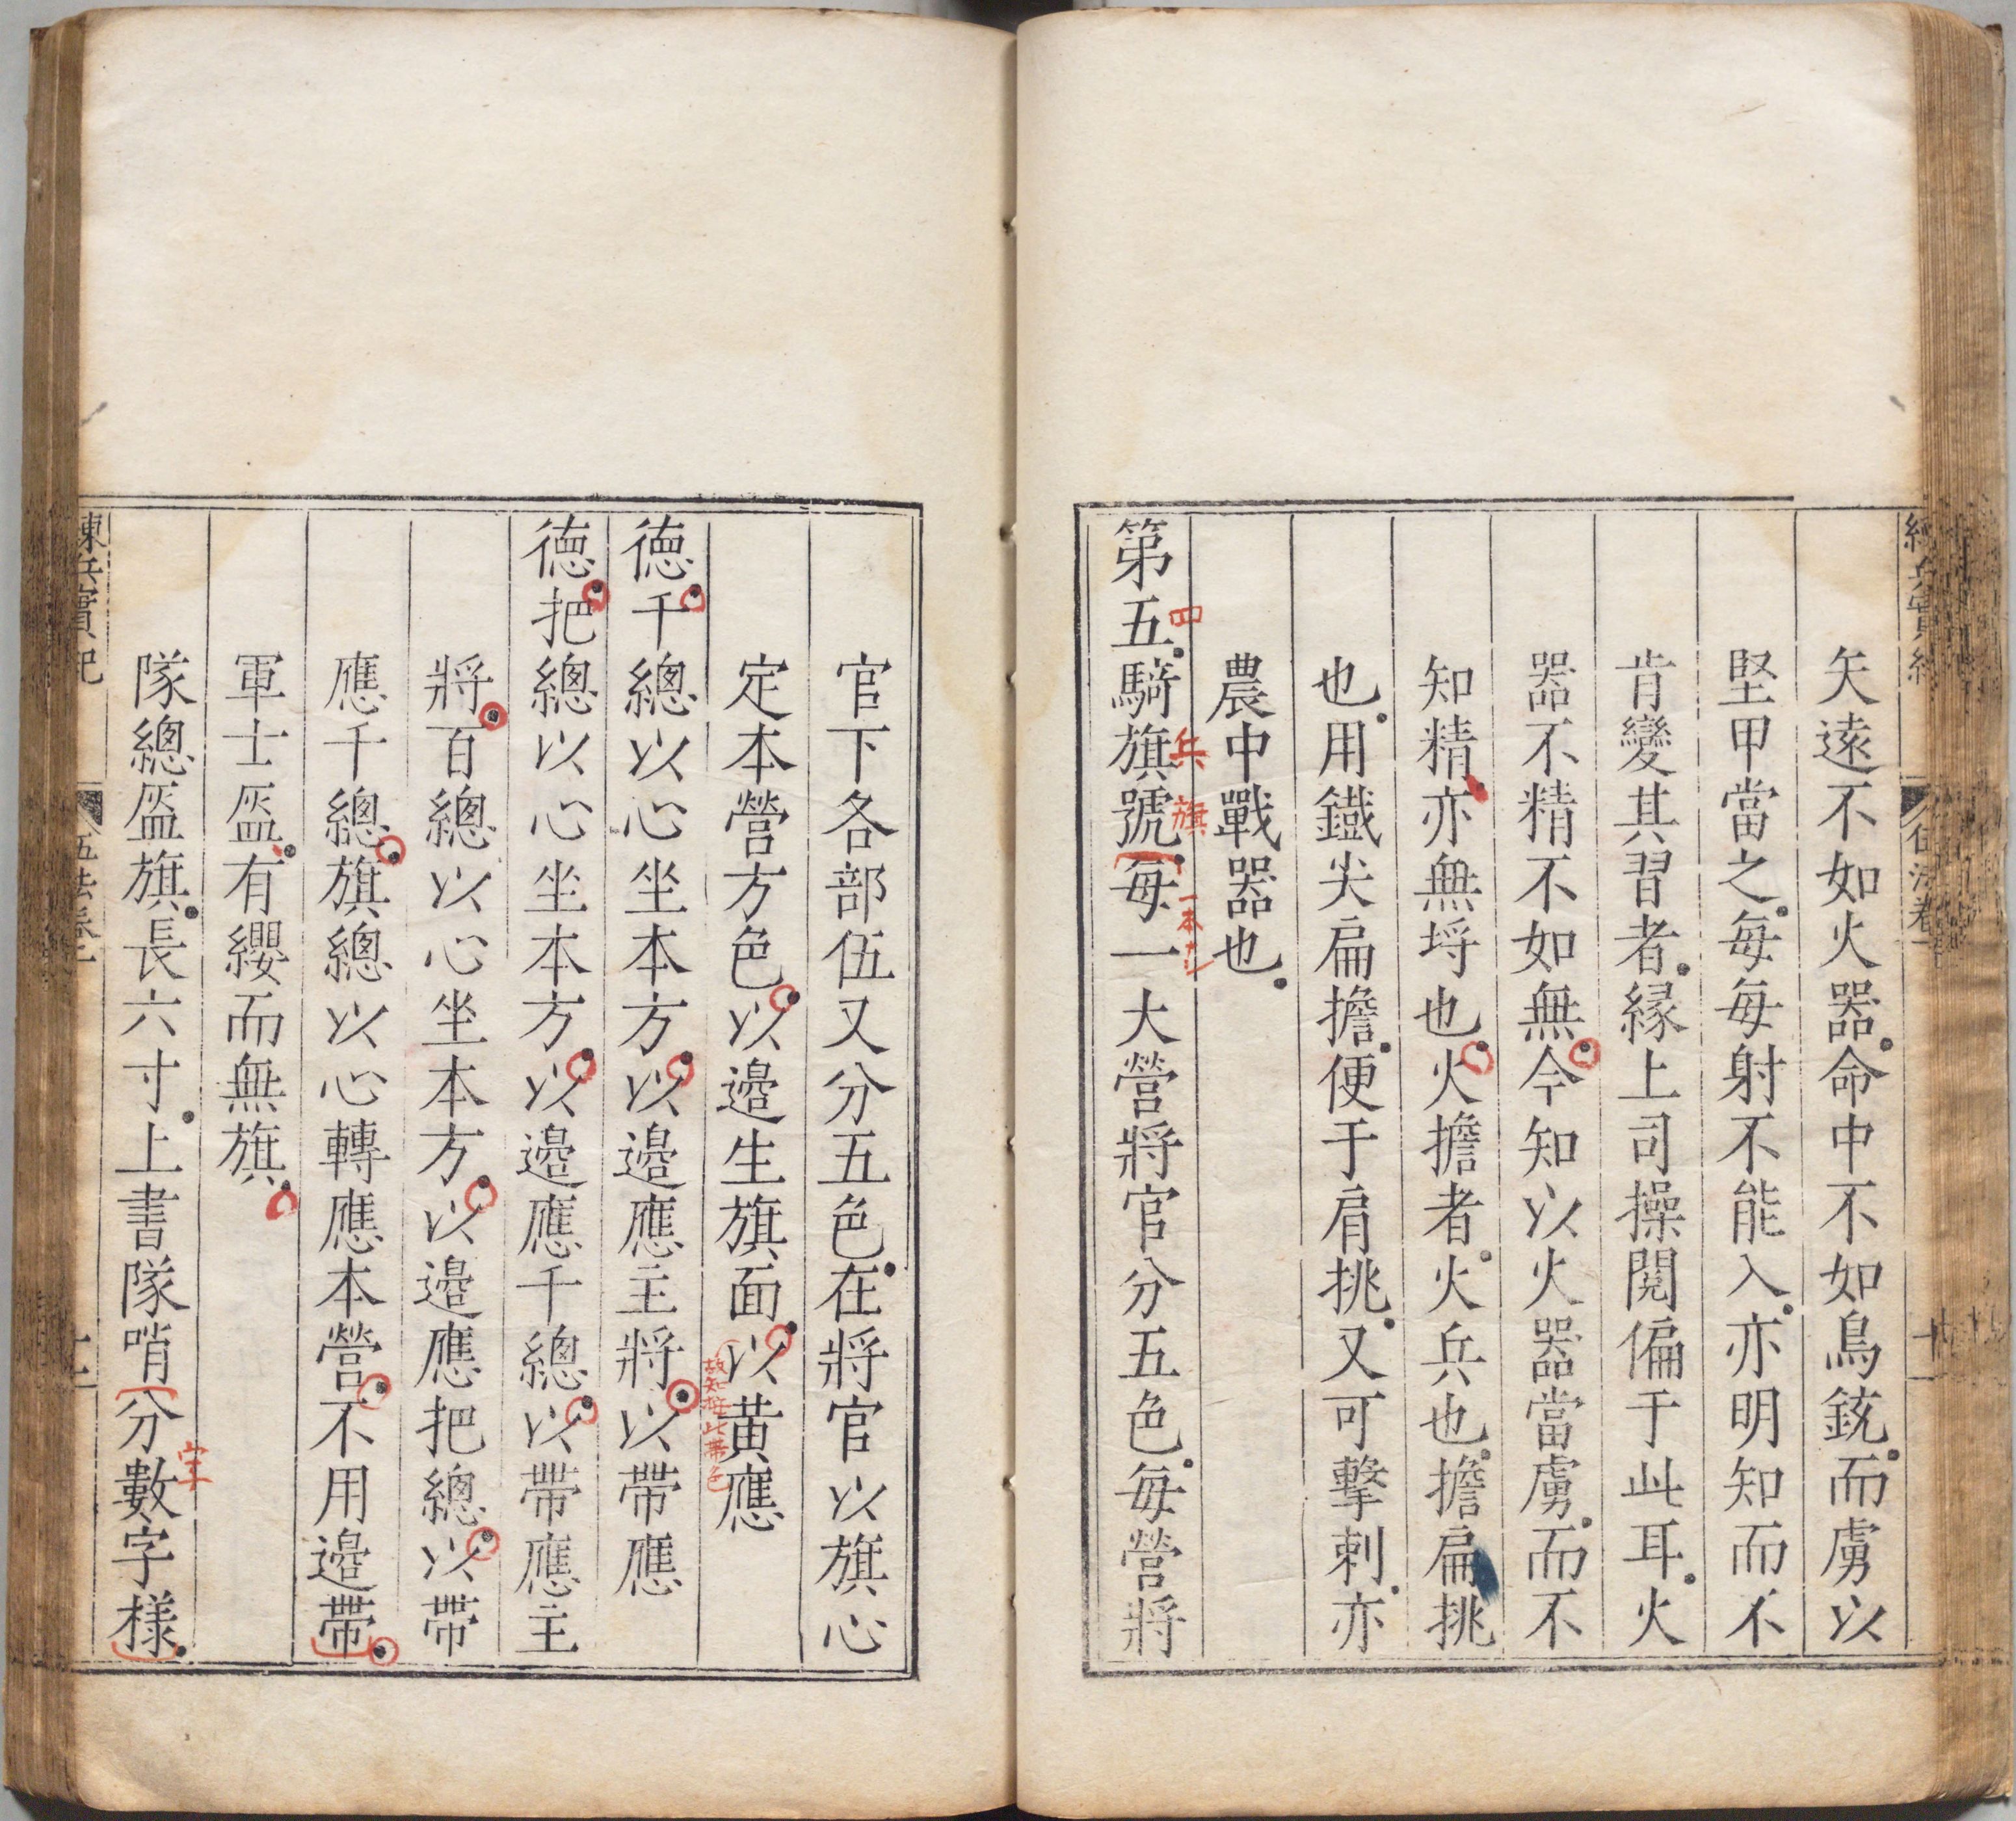 矢遠不如火器命中不如鳥銃而虜以
堅甲當之每每射不能入亦明知而不
肯變其習者緣上司操閱偏于此耳火
器不精不如無今知以火器當虜而不
知精亦無埒也火擔者火兵也擔扁挑
也用鐵尖扁擔便于肩挑又可擊刺亦
農中戰器也
第五騎旗號每一大營將官分五色每營將
四兵旗
一本ナシ
官下各部伍又分五色在將官以旗心
定本營方色以邉生旗面以黃應
德千總以心坐本方以邉應主將以帶應
德把總以心坐本方以邉應千總以帶應主
將百總以心坐本方以邉應把總以帶
應千總旗總以心轉應本營不用邉帶
軍士盔有纓而無旗
隊總盔旗長六寸上書隊哨分數字樣
字
練兵實紀
伍法卷一